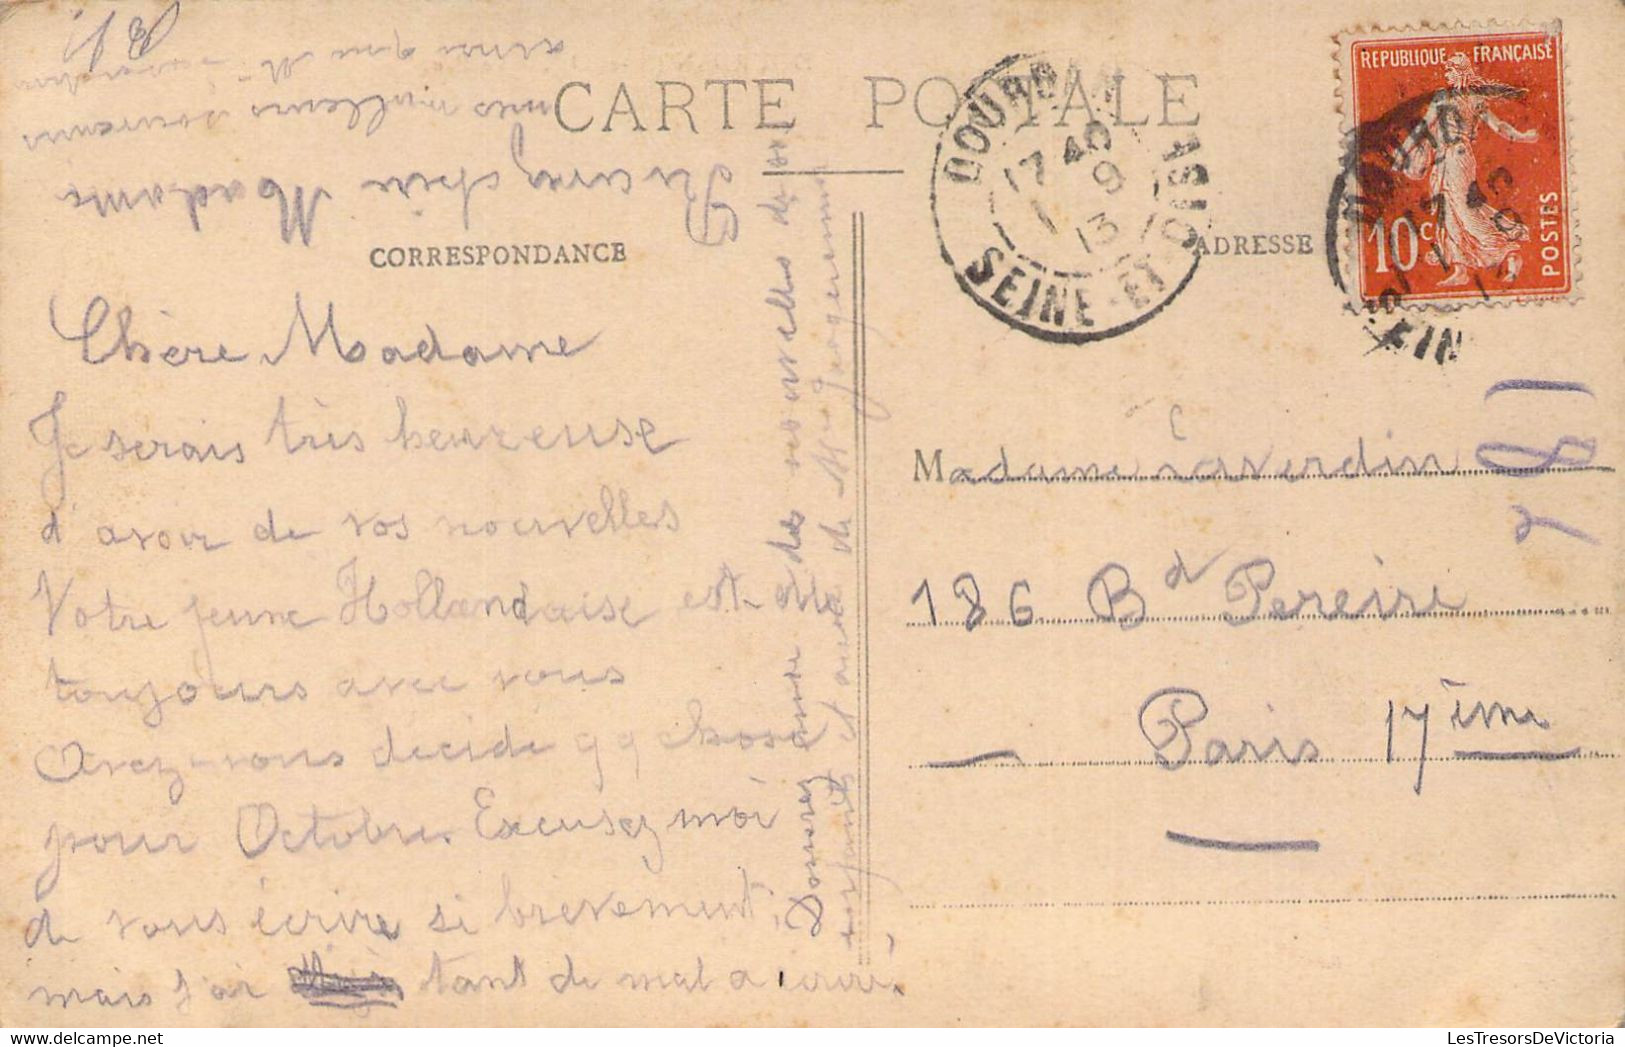 CARTE POSTALE
CORRESPONDANCE
Chère Madame
Je serais très heureuse
d'avoir de vos nouvelles
Votre jeune Hollandaise est-elle
toujours avec vous
Avez-vous décidé qq chose
pour Octobre. Excusez moi
de vous écrire si brièvement,
mais j'ai tant de mal a écrire.
Donnez moi des nouvelles de vos
enfants et aussi de
Recevez chère Madame
mes meilleurs souvenirs
ainsi que Mr
ADRESSE
REPUBLIQUE FRANÇAISE
10c
POSTES
DOURDAN
17 40
1 9
13
SEINE-ET-OISE
781
Madame Laverdin
186 Bd Pereire
Paris 17ème
LesTresorsDeVictoria.com